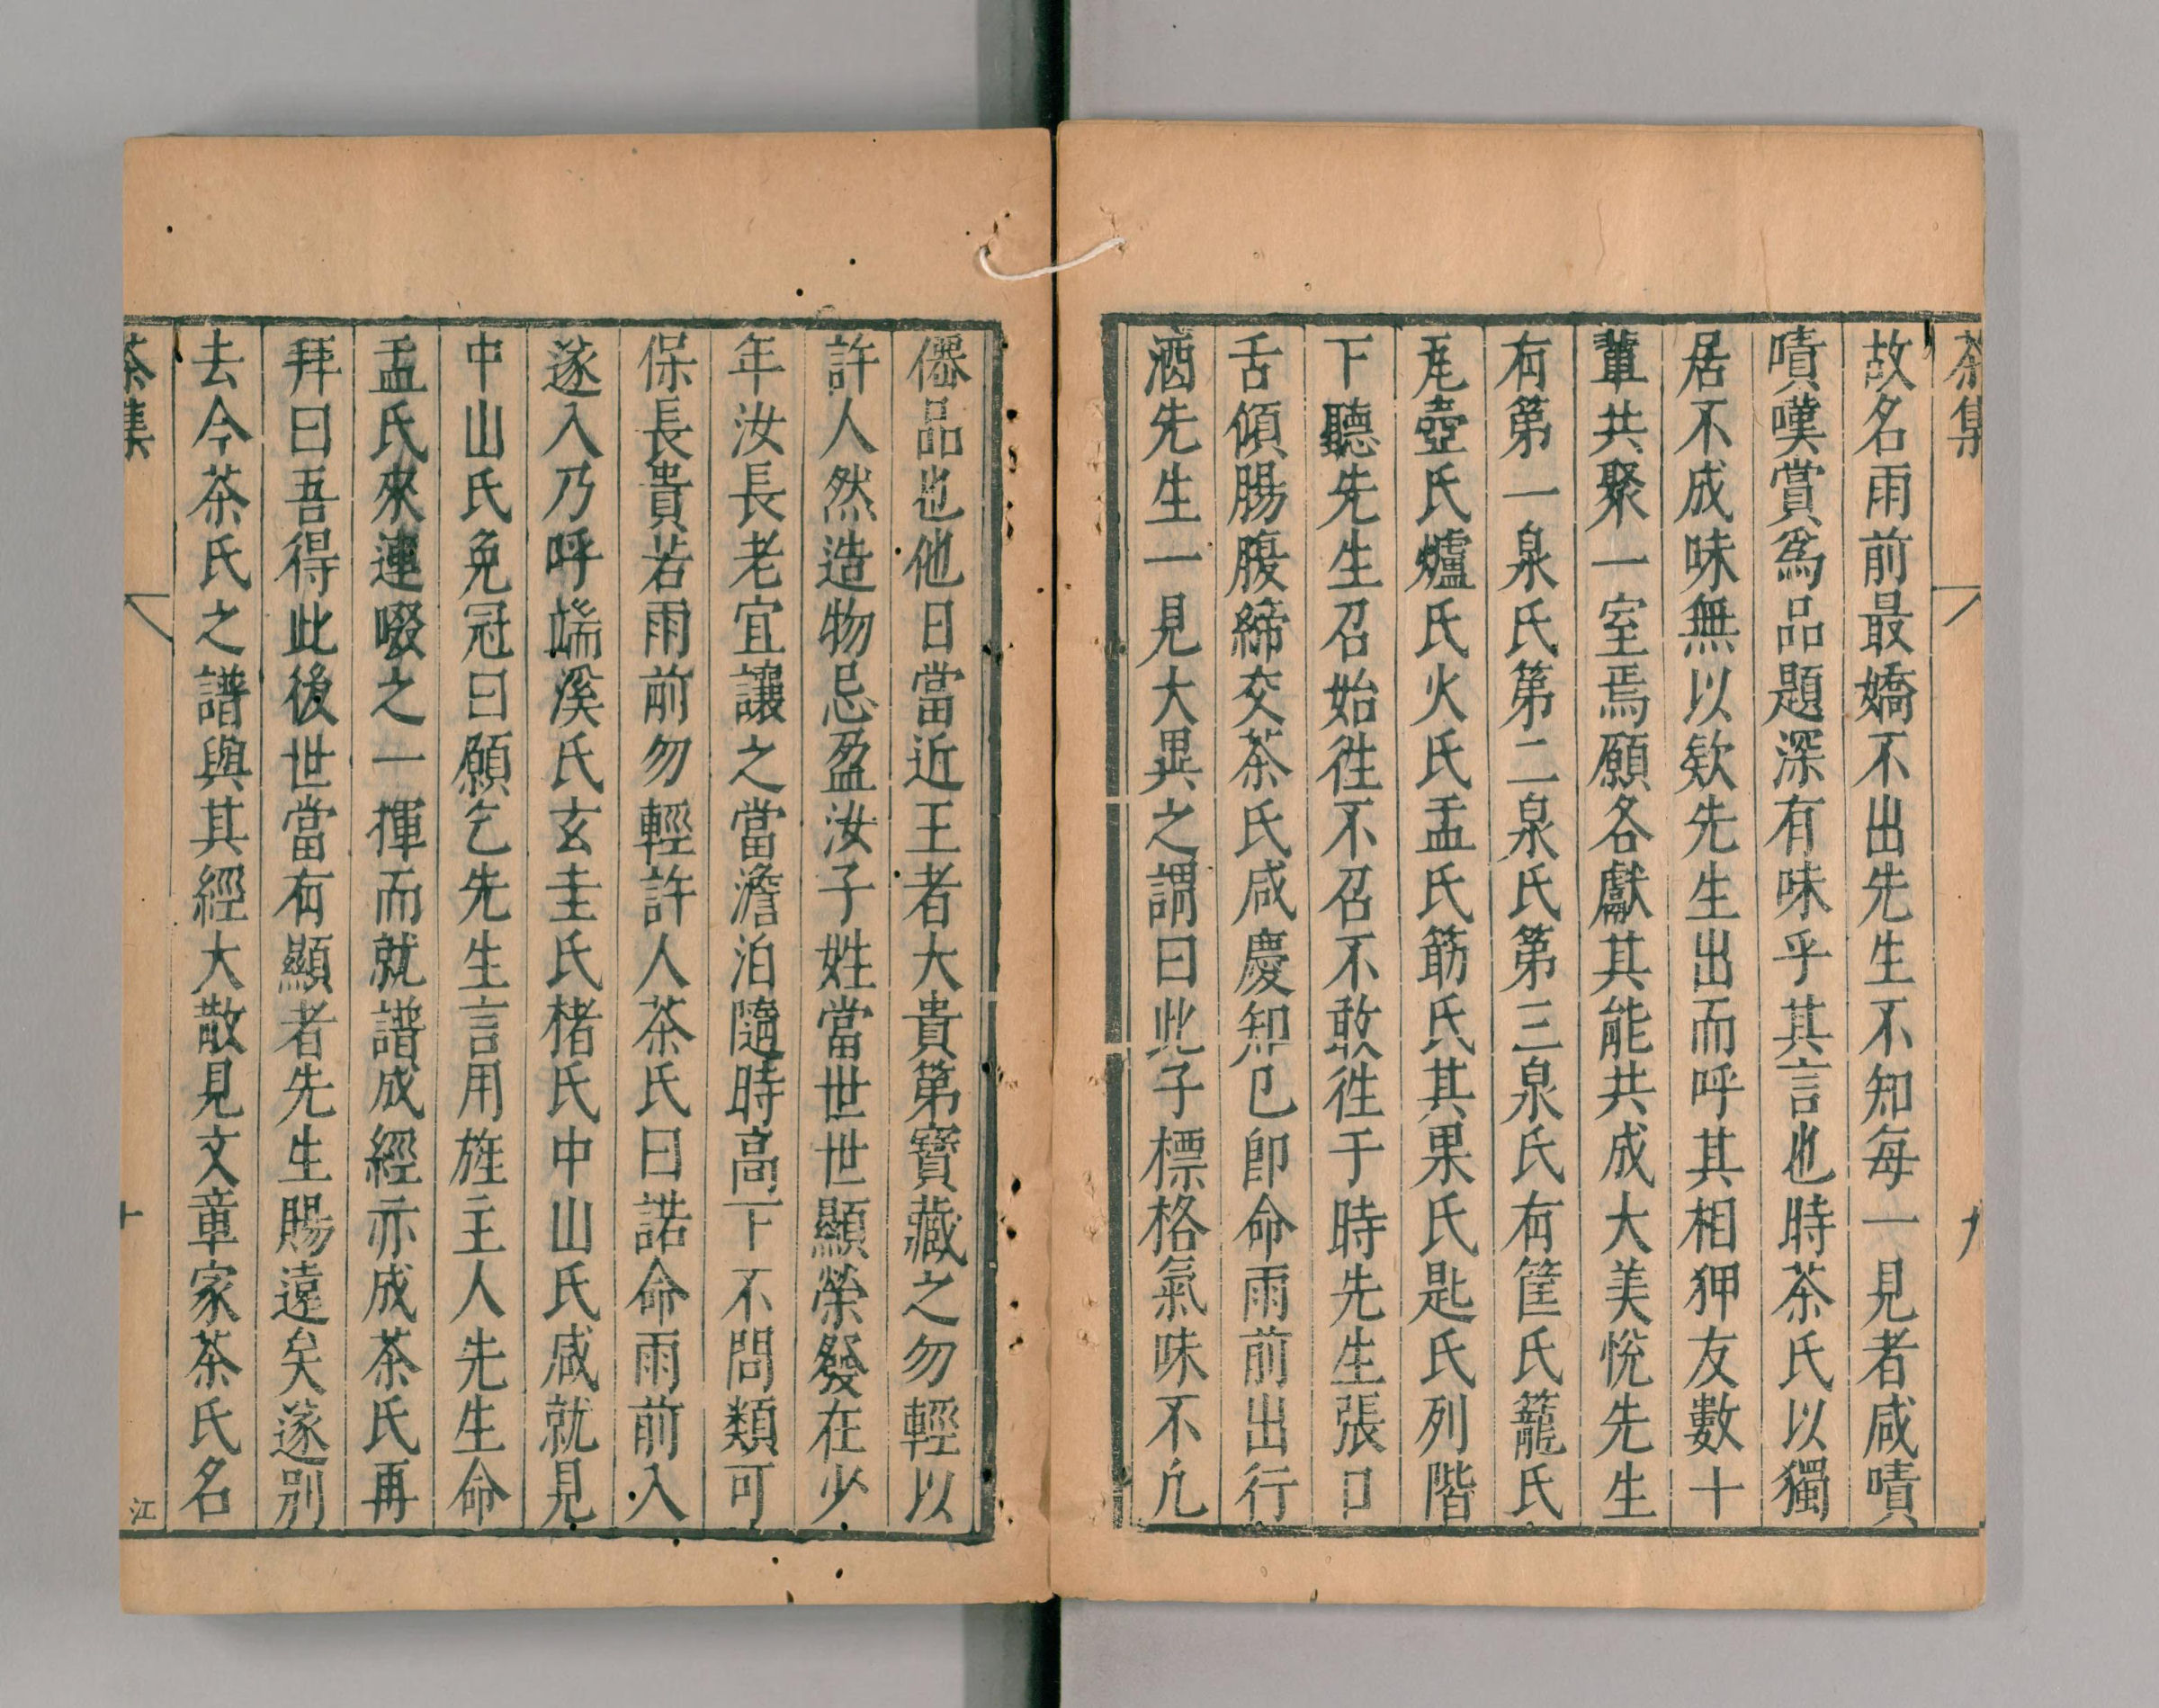 茶集
九
故名雨前最嬌不出先生不知每一見者咸嘖
嘖嘆賞爲品題深有味乎其言也時茶氏以獨
居不成味無以欵先生出而呼其相狎友數十
輩共聚一室焉願各獻其能共成大美悅先生
有第一泉氏第二泉氏第三泉氏有筐氏籠氏
瓦壺氏爐氏火氏盂氏筯氏其果氏匙氏列階
下聽先生召始徃不召不敢徃于時先生張口
舌傾腸腹締交茶氏咸慶知已卽命雨前出行
酒先生一見大異之謂曰此子標格氣味不凢
僊品也他日當近王者大貴第寶藏之勿輕以
許人然造物忌盈汝子姓當世世顯榮發在少
年汝長老宜讓之當澹泊隨時高下不問類可
保長貴若雨前勿輕許人茶氏曰諾命雨前入
遂入乃呼端溪氏玄圭氏楮氏中山氏咸就見
中山氏免冠曰願乞先生言用旌主人先生命
盂氏來連啜之一揮而就譜成經亦成茶氏再
拜曰吾得此後世當有顯者先生賜遠矣遂別
去今茶氏之譜與其經大散見文章家茶氏名
茶集
十
江